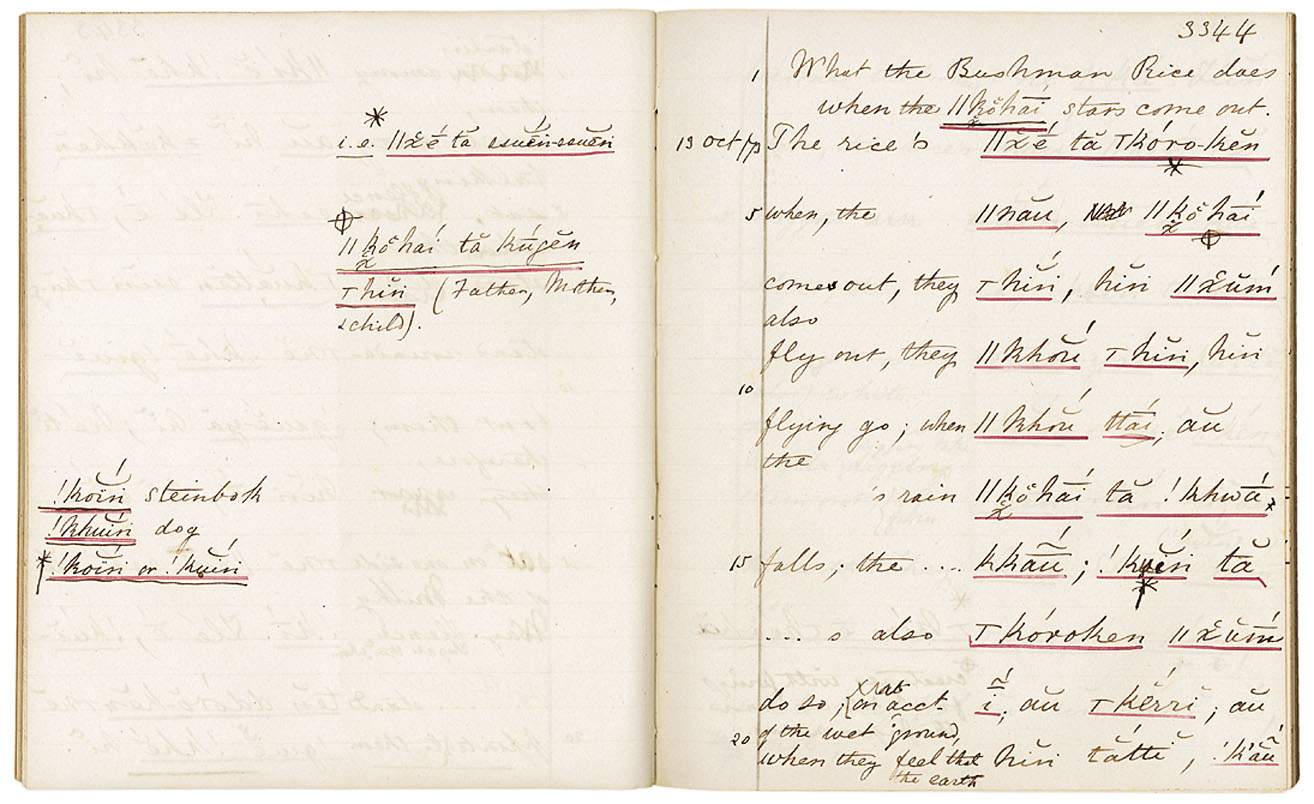 *
i.e. ǁx̆é tă ssuĕ́n-ssuĕn
ǁkŏ̤haí tă kúgĕn
⊤hĭn (Father, Mother,
& child).
!kóïn steinbok
!khuĭ́n dog
* !kóïn or !kuĭ́n
3344
1 What the Bushman Rice does
when the ǁkŏ̤haí stars come out.
13 Oct/79 The rice's ǁx̆é tă ⊤kóro-kĕn
*
5 when, the ǁnău, ǁkŏ̤haí
come out, they ⊤hĭń, hĭn ǁx̆ŭḿ
also
fly out, they ǁkhóü ⊤hĭn, hĭn
10
flying go; when ǁkhóŭ ttaí, au
the
's rain ǁkŏ̤haí tă !khwā́
15 falls; the .... kkāŭ; tă
*
... s also ⊤kóroken ǁx̆ŭḿ
do so, on acct. ī, au ⊤kĕrri; au
of the wet ground,
20 when they feel that hĭn táttĭ, !k'áŭ
the earth